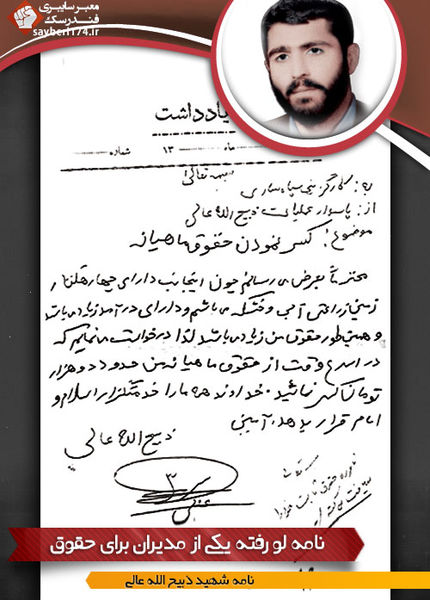 معبر سایبری
فندرسک
sayberi174.ir
یادداشت
ماه ۱۳ شماره
بسمه تعالی
به: کارگزینی سپاه ساری
از: پاسدار عملیات ذبیح الله عالی
موضوع: کسر نمودن حقوق ماهیانه
محترماً بعرض می رسانم چون اینجانب دارای چهار هکتار
زمین زراعتی آبی و خشکه می باشم و دارای درآمد زیاد می باشد
و همینطور حقوق من زیاد می باشد لذا درخواست می نمایم که
در اسرع وقت از حقوق ماهیانه من حدود دو هزار
تومان کسر نمائید. خداوند همه ما را خدمتگزار اسلام و
امام قرار بدهد. آمین
ذبیح الله عالی
نامه لو رفته یکی از مدیران برای حقوق
نامه شهید ذبیح الله عالی